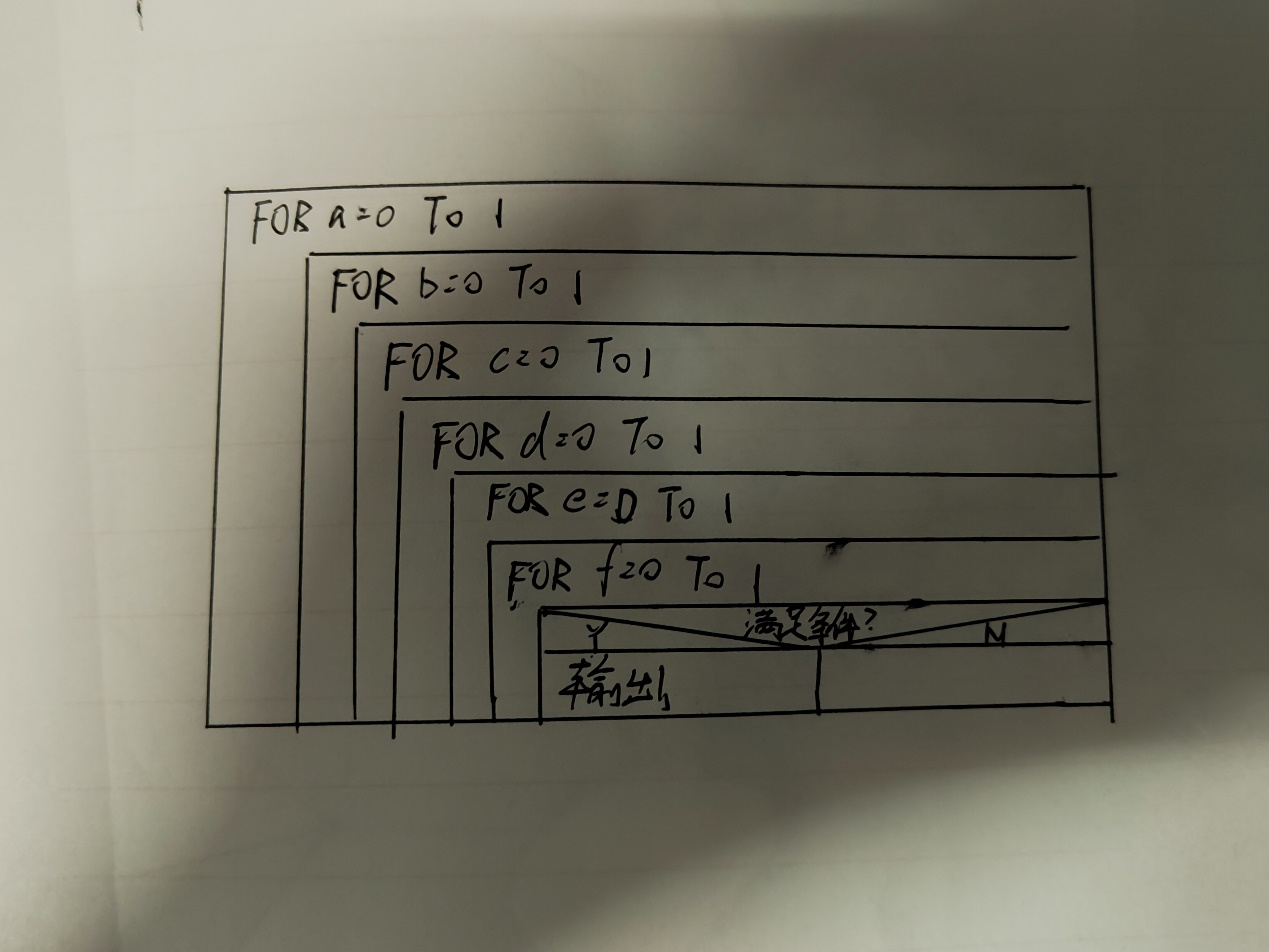 FOR a=0 To 1
FOR b=0 To 1
FOR c=0 To 1
FOR d=0 To 1
FOR e=0 To 1
FOR f=0 To 1
满足条件?
Y N
输出